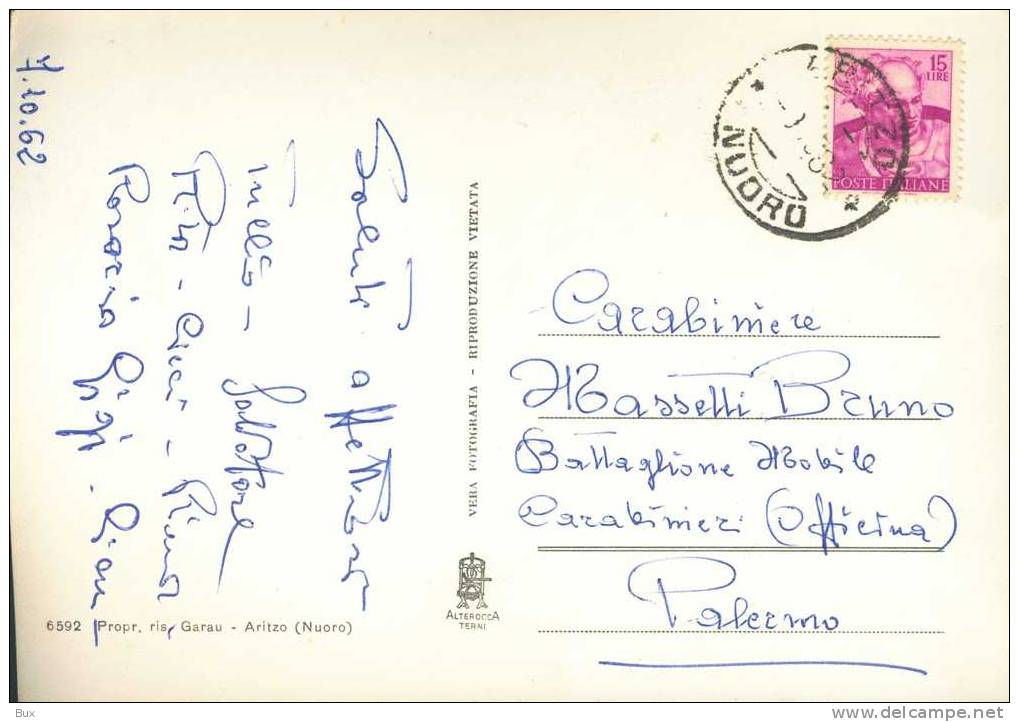 7.10.62
Saluti affettuosi
Salvatore
Rita -
Rosaria Gigi.
VERA FOTOGRAFIA - RIPRODUZIONE VIETATA
15
LIRE
POSTE ITALIANE
NUORO
Carabiniere
Massetti Bruno
Battaglione Mobile
Carabinieri (Officina)
Palermo
ALTEROCCA
TERNI
6592 Propr. ris. Garau - Aritzo (Nuoro)
Bux
www.delcampe.net